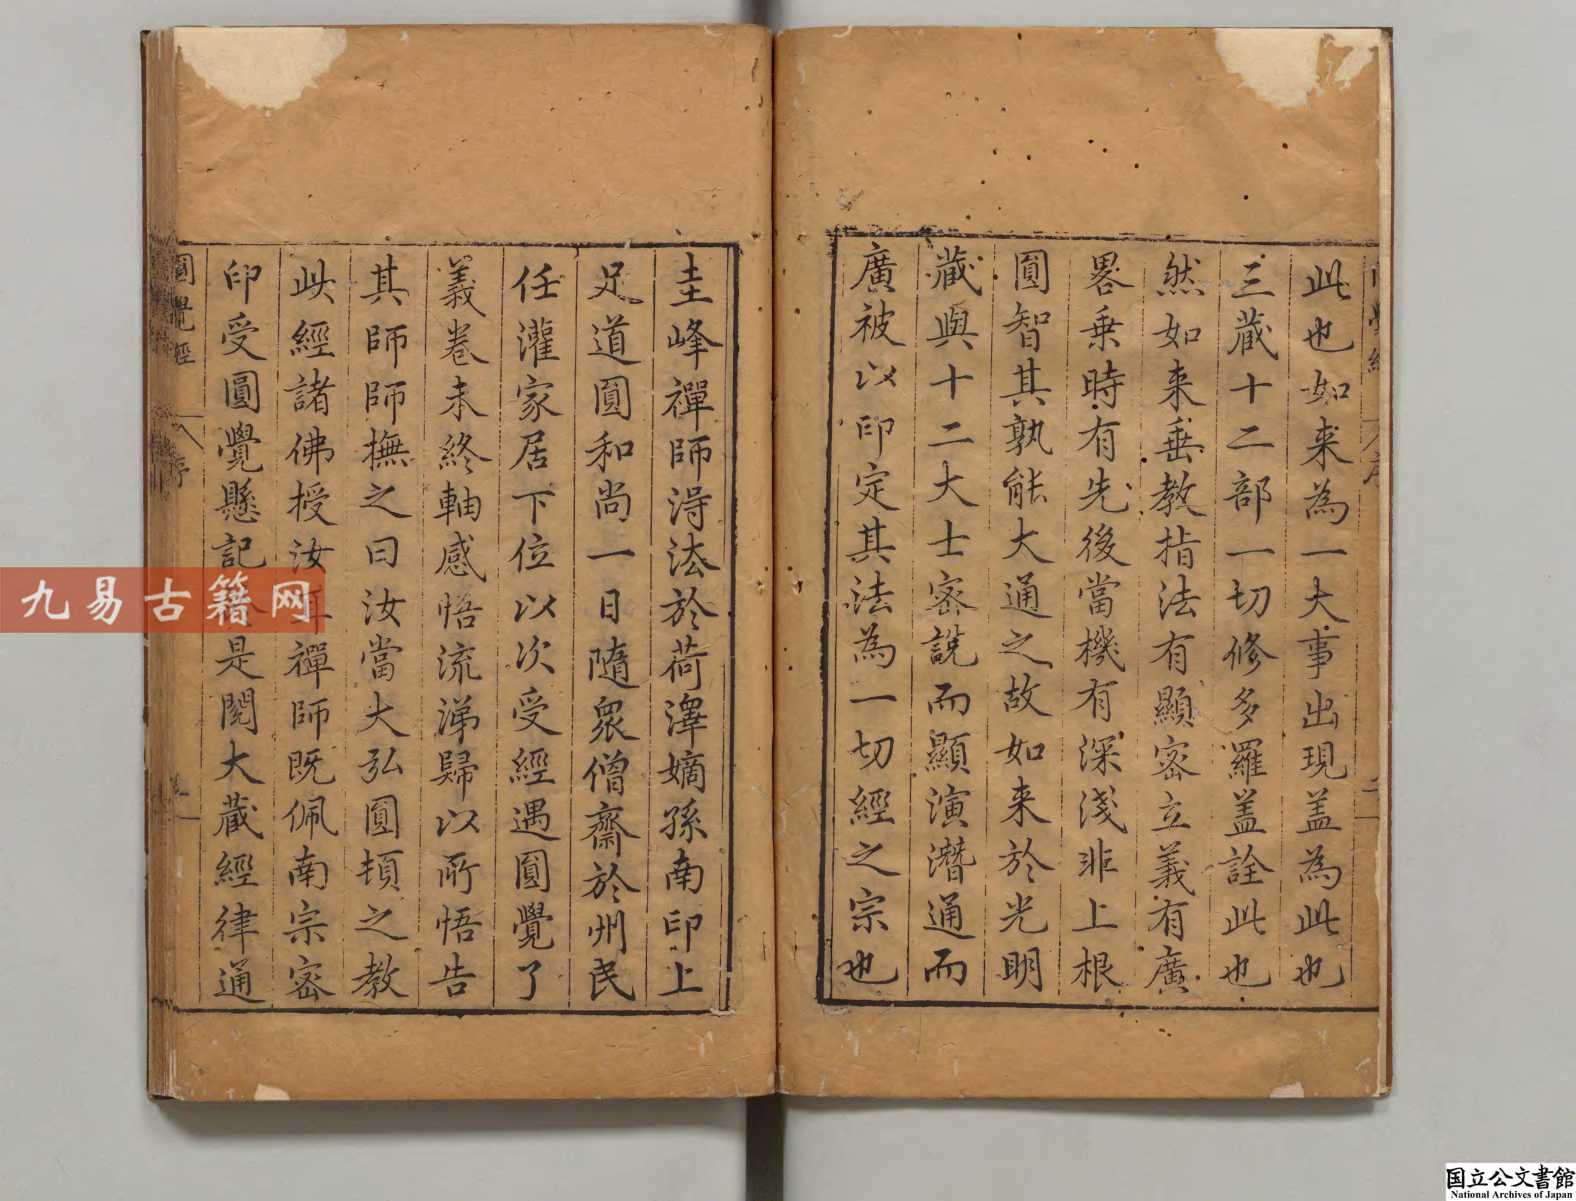 此也如来為一大事出現盖為此也
三藏十二部一切修多羅盖詮此也
然如来垂教指法有顯密立義有廣
畧乗時有先後當機有深淺非上根
圓智其孰能大通之故如来於光明
藏與十二大士密說而顯演潛通而
廣被以印定其法為一切經之宗也
圭峰禪師淂法於荷澤嫡孫南印上
足道圓和尚一日隨衆僧齋於州民
任灌家居下位以次受經遇圓覺了
義卷未終軸感悟流涕歸以所悟告
其師師撫之曰汝當大弘圓頓之教
此經諸佛授汝耳禪師既佩南宗密
印受圓覺懸記於是閱大藏經律通
圓覺經 序
九易古籍网
国立公文書館
National Archives of Japan